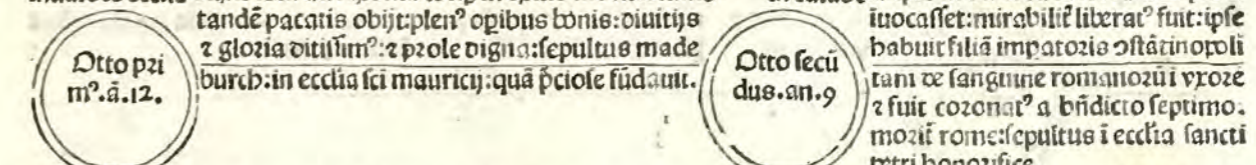 tandē pacatis obijt:plenꝰ opibus bonis:diuitijs
⁊ gloria ditissimꝰ:⁊ prole digna:sepultus made
burch:in ecclīa scī mauricij:quā p̄ciose fūdauit.
Otto pri
mꝰ.ā.12.
Otto secū
dus.an.9
iuocasset:mirabilit̄ liberatꝰ fuit:ipse
habuit filiā imp̄atoris ↄstātinopoli
tani de sanguine romanorū i vxorē
⁊ fuit coronatꝰ a bn̄dicto septimo.
morit̄ rome:sepultus ī ecclīa sancti
petri honorifice